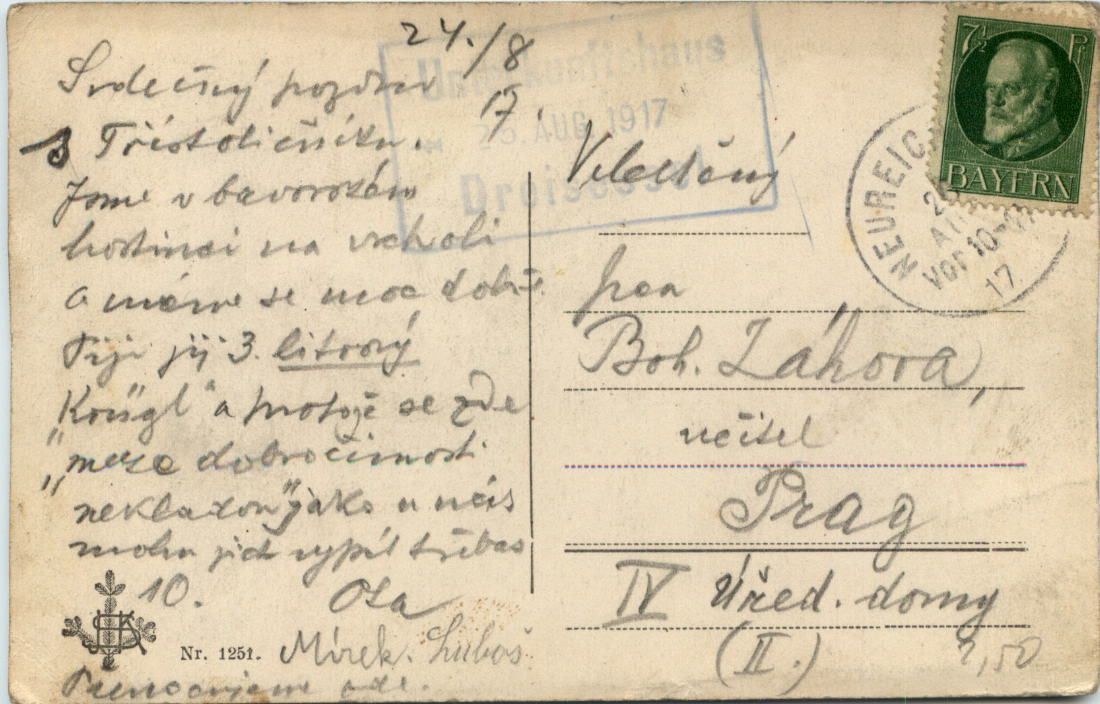 24./8
17.
Srdečný pozdrav
s Třístoličníku.
Jsme v bavorském
hostinci na vrcholi
a máme se moc dobře.
Piji již 3. litrový
"Krügl" a protože se zde
"meze dobročinnosti
nekladou" jako u nás
mohu jich vypít třebas
10. Ota
Mirek. Luboš
Přenocujeme zde.
Nr. 1251.
Unterkunftshaus
25. AUG. 1917
Dreisessel
Velectěný
pan
Boh. Záhora,
učitel
Prag
IV Úřed. domy
(II.)
2,50
7½ Pf
BAYERN
NEUREIC
Vor 10-11
17